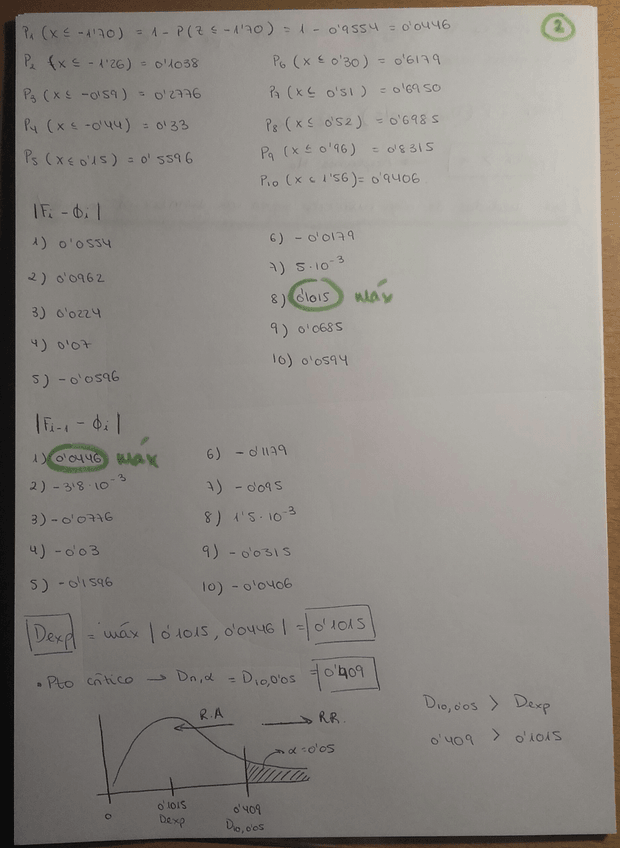 P₁ (x ≤ -1'70) = 1 - P(Z ≤ -1'70) = 1 - 0'9554 = 0'0446
2
P₂ (x ≤ -1'26) = 0'1038
P₃ (x ≤ -0'59) = 0'2776
P₄ (x ≤ -0'44) = 0'33
P₅ (x ≤ 0'15) = 0'5596
P₆ (x ≤ 0'30) = 0'6179
P₇ (x ≤ 0'51) = 0'6950
P₈ (x ≤ 0'52) = 0'6985
P₉ (x ≤ 0'96) = 0'8315
P₁₀ (x ≤ 1'56) = 0'9406
|Fᵢ - ϕᵢ|
1) 0'0554
2) 0'0962
3) 0'0224
4) 0'07
5) -0'0596
6) -0'0179
7) 5·10⁻³
8) 0'1015 máx
9) 0'0685
10) 0'0594
|Fᵢ₋₁ - ϕᵢ|
1) 0'0446 máx
2) -3'8·10⁻³
3) -0'0776
4) -0'03
5) -0'1596
6) -0'1179
7) -0'095
8) 1'5·10⁻³
9) -0'0315
10) -0'0406
Dexp = máx |0'1015, 0'0446| = 0'1015
• Pto crítico → Dn,α = D₁₀,₀'₀₅ = 0'409
D₁₀,₀'₀₅ > Dexp
0'409 > 0'1015
R.A
RR.
α = 0'05
0
0'1015
Dexp
0'409
D₁₀,₀'₀₅